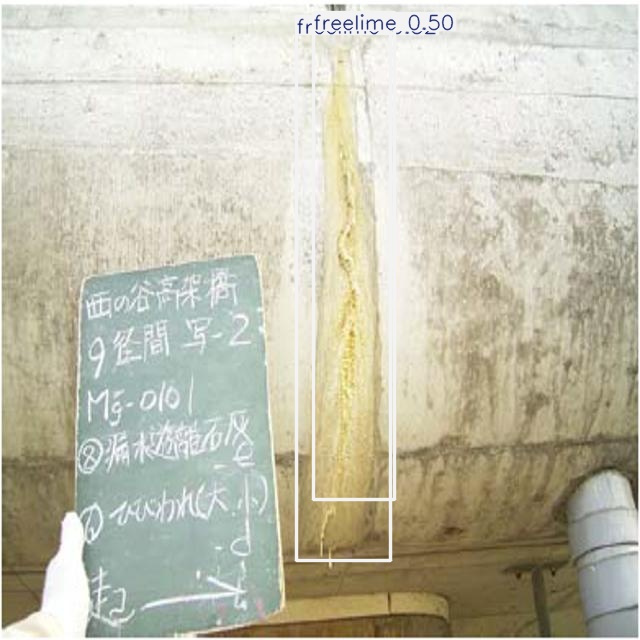 freelime 0.50
西の谷高架橋
9径間 写-2
Mg-0101
⑧漏水遊離石灰
ひびわれ(大小)
起